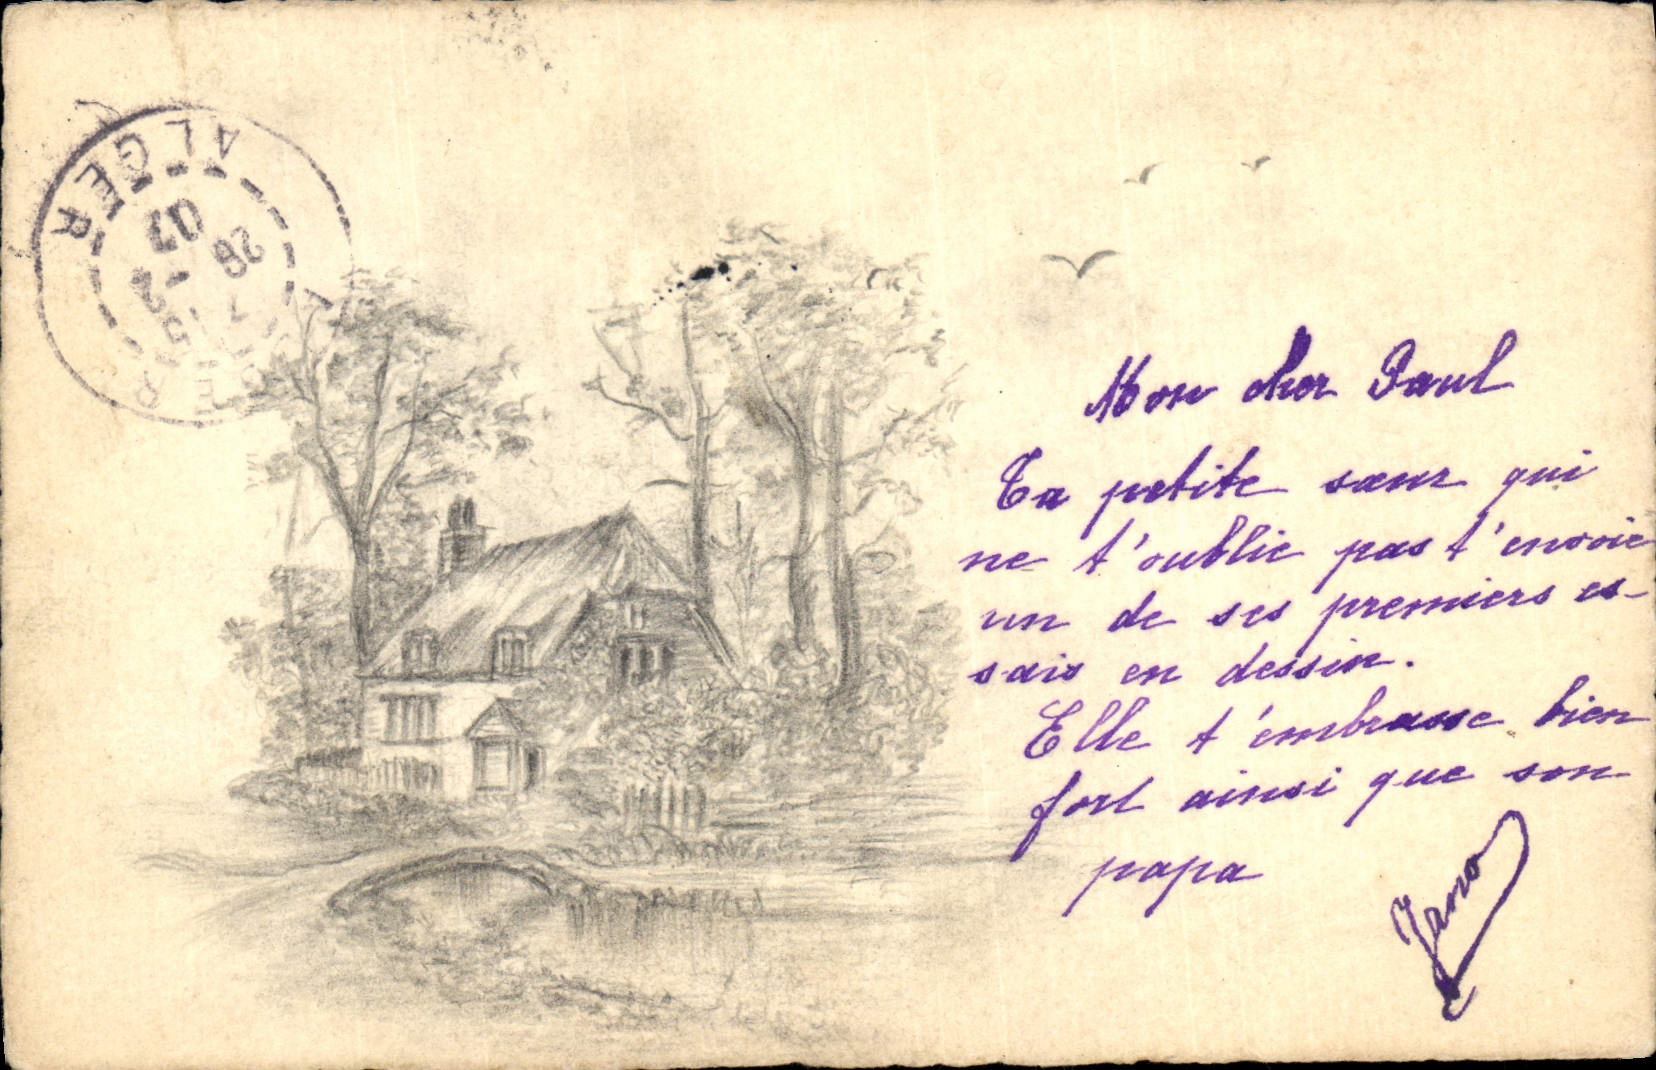 ALGER
15
28 -2
07
Mon cher Paul
Ta petite sœur qui
ne t'oublie pas t'envoie
un de ses premiers es-
sais en dessin.
Elle t'embrasse bien
fort ainsi que son
papa